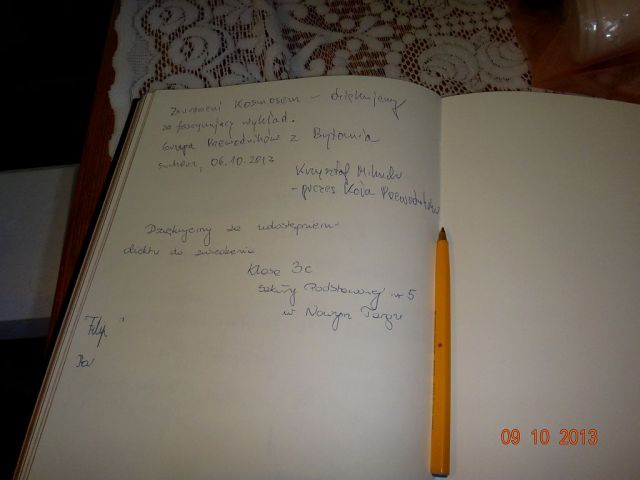 Zauroczeni Kosmosem - dziękujemy
za fascynujący wykład.
Grupa Przewodników z Bytomia
06.10.2013
Krzysztof
- prezes Koła Przewodników
Dziękujemy za udostępnienie
obiektu do zwiedzania
Klasa 3c
Szkoły Podstawowej nr 5
w Nowym Targu
Filip
09 10 2013